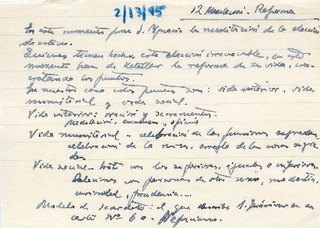 2/13/45
12 Meditación. Reforma
En este momento pone S. Ignacio la meditación de la elección
de estado.
Quienes tienen hecha esta elección irrevocable, en este
momento han de detallar la reforma de su vida, con-
cretando los puntos.
En nuestro caso estos puntos son: vida interior, vida
ministerial y vida social.
Vida interior: oración y sacramentos.
Meditación, examen, oficio
Vida ministerial - celebración de las funciones sagradas,
celebración de la misa, arreglo de las cosas sagra-
das
Vida social - trato con los superiores, iguales o inferiores.
Relaciones con personas de otro sexo, modestia,
curiosidad, prudencia...
Modelo de sacerdote: el que describe S. Jerónimo en su
carta Nº 60. Nepociano.